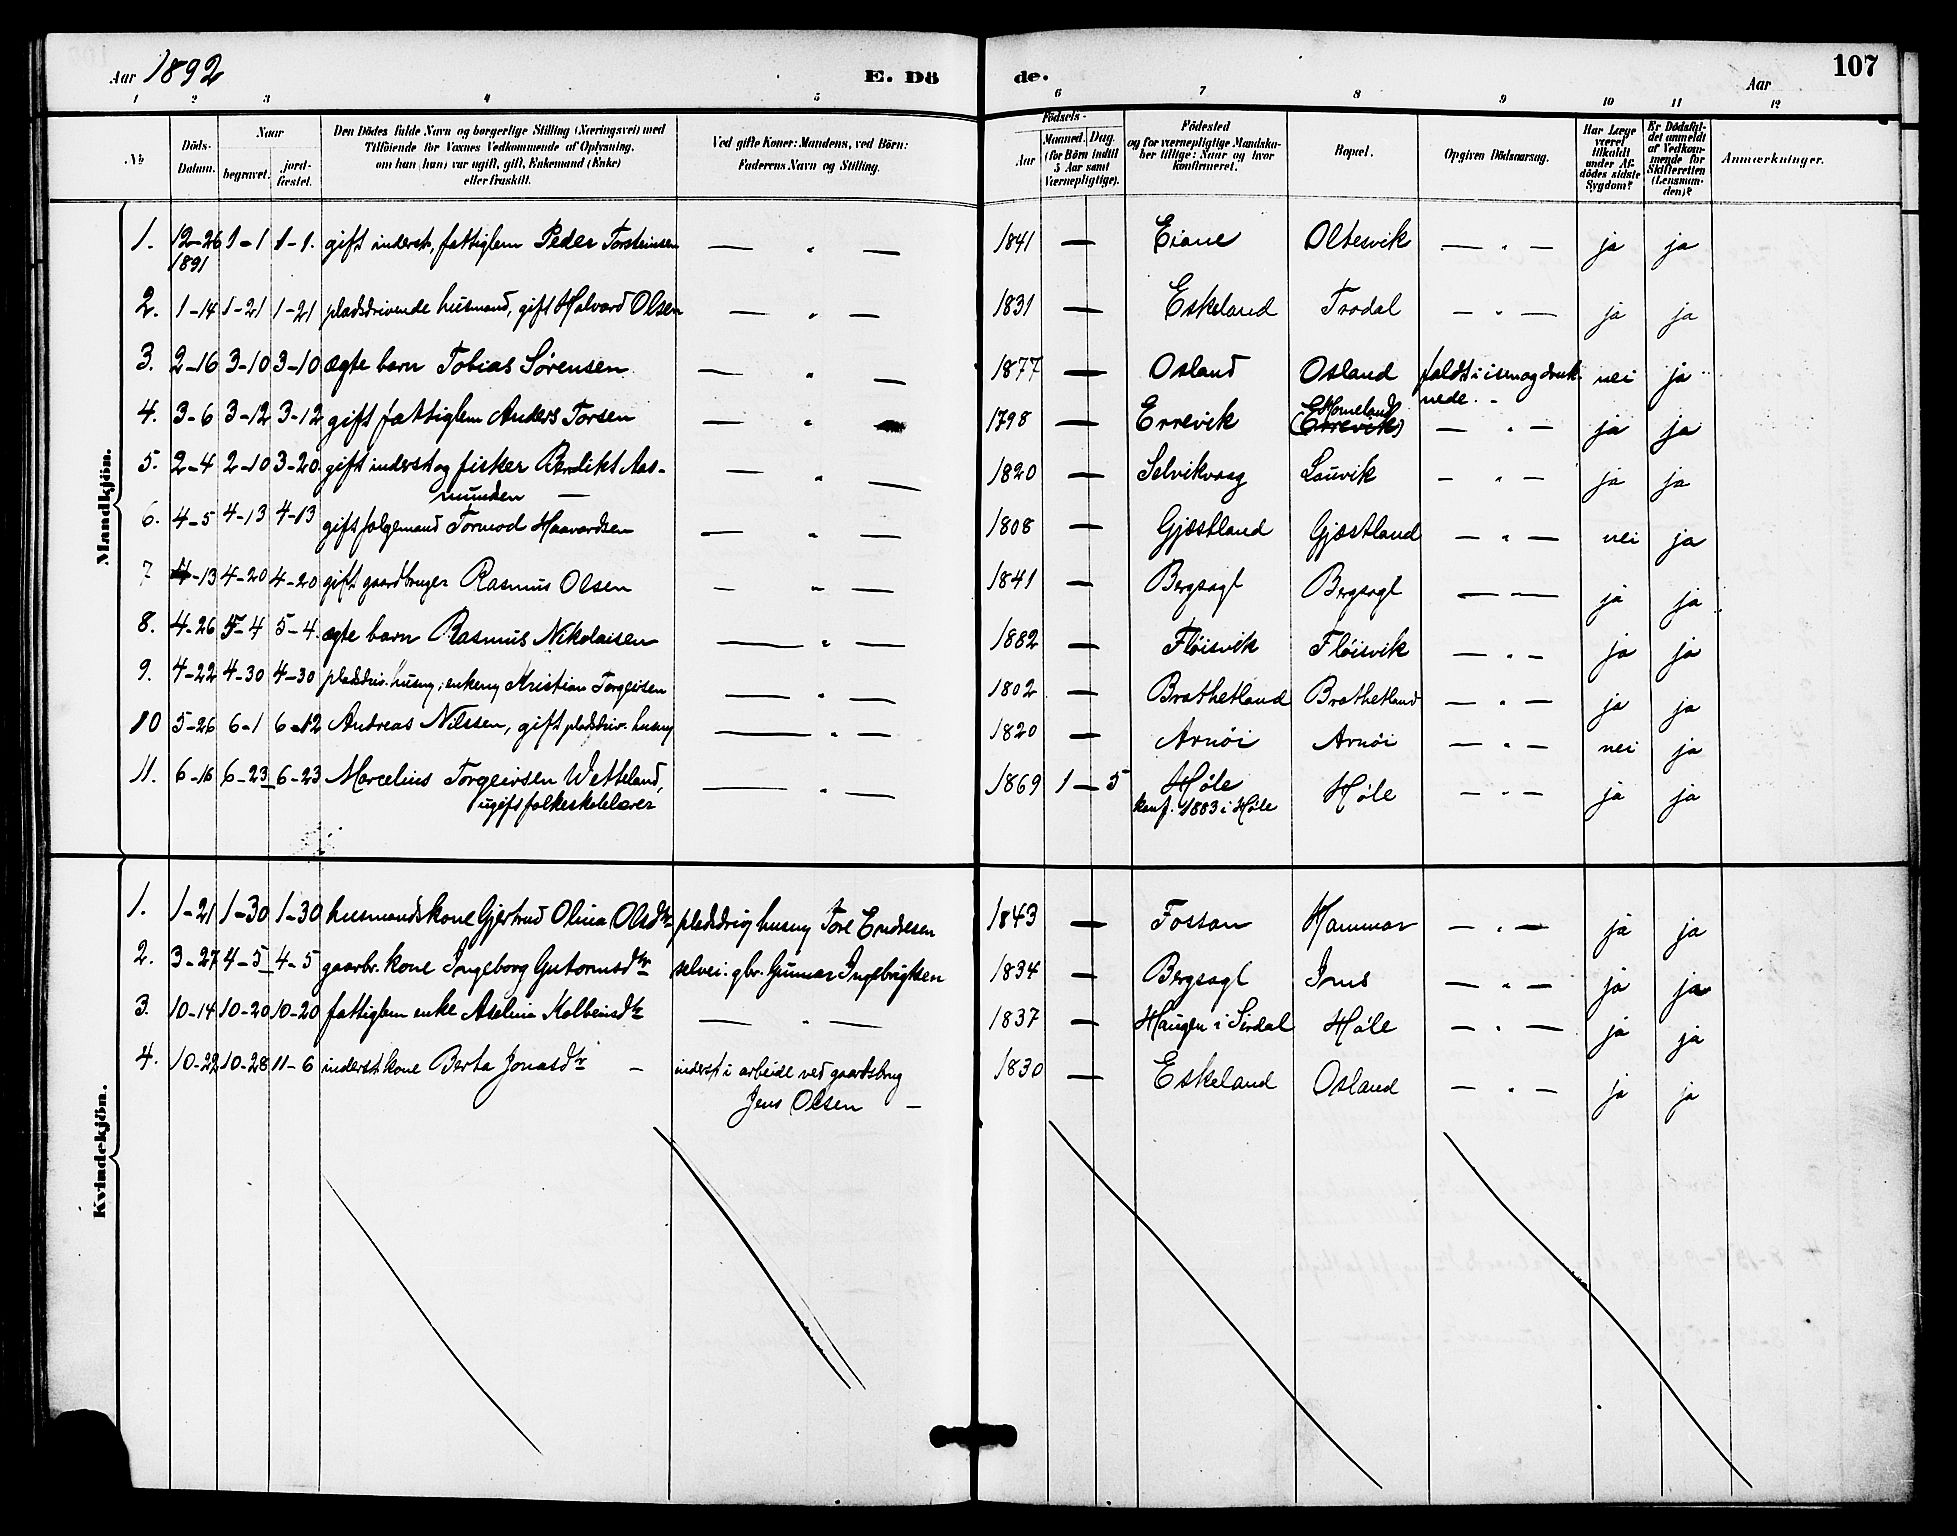 Aar 1892 E. Dö de. Aar 107
1 2 3 4 5 6 7 8 9 10 11 12
№ Döds-Datum. Naar begravet. jordfæstet. Den Dödes fulde Navn og borgerlige Stilling (Næringsvei) med Tilföiende for Voxnes Vedkommende af Oplysning, om han (hun) var ugift, gift, Enkemand (Enke) eller fraskilt. Ved gifte Koner: Mandens, ved Börn: Faderens Navn og Stilling. Födsels- Aar Maaned. Dag. (for Börn indtil 5 Aar samt Værnepligtige). Födested og for værnepligtige Mandskaber tillige: Naar og hvor konfirmeret. Bopæl. Opgiven Dödsaarsag. Har Læge været tilkaldt under Afdödes sidste Sygdom? Er Dödsfaldet anmeldt af Vedkommende for Skifteretten (Lensmanden)? Anmærkninger.
Mandkjön.
1. 12-26 1891 1-1 1-1. gift inderst, fattiglem Peder Torsteinsen — " — 1841 — Eiane Oltesvik — " — ja ja
2. 1-14 1-21 1-21 pladsdrivende husmand, gift Halvard Olsen — " — 1831 — Eskeland Frodal — " — ja ja
3. 2-16 3-10 3-10 ægte barn Tobias Sörensen — " — 1877 — Osland Osland faldt i isen og druknede. - nei ja
4. 3-6 3-12 3-12 gift fattiglem Anders Torsen — " — 1798 — Errevik Horneland (Errevik) — " — ja ja
5. 2-4 2-10 3-20 gift inderst og fisker Bendikt Aas-
munden — — " — 1820 — Selvikvaag Lauvik — " — ja ja
6. 4-5 4-13 4-13 gift folgemand Tormod Haavardsen — " — 1808 — Gjæstland Gjæstland — " — nei ja
7 4-13 4-20 4-20 gift gaardbruger Rasmus Olsen — " — 1841 — Bergsagl Bergsagl — " — ja ja
8. 4-26 5-4 5-4. ægte barn Rasmus Nikolaisen — " — 1882 — Flöisvik Flöisvik — " — ja ja
9. 4-22 4-30 4-30 pladsdriv. husm, enkem Kristian Torgersen — " — 1802 — Brathetland Brathetland — " — ja ja
10 5-26 6-1 6-12 Andreas Nilssen, gift pladsdriv. husm — " — 1820 — Arnöi Arnöi — " — nei ja
11. 6-16 6-23 6-23 Marcelius Torgeirsen Wetteland,
ugift folkeskolelærer — " — 1869 1 — 5 Höle
konf. 1883 i Höle Höle — " — ja ja
Kvindekjön.
1. 1-21 1-30 1-30 husmandskone Gjertrud Olina Olsdtr pladsdriv husm Tore Endresen 1843 — Fossan Hammar — " — ja ja
2. 3-27 4-5 4-5 gaarbr. kone Ingeborg Gutormsdtr selvei. gbr. Gunnar Ingebrigtsen 1834 — Bergsagl Ims — " — ja ja
3. 10-14 10-20 10-20 fattiglem enke Aselina Kolbeinsdtr — " — 1837 — Haugen i Sirdal Höle — " — ja ja
4. 10-22 10-28 11-6 inderstkone Berta Jonasdtr — inderst i arbeide ved gaardsbrug
Jens Olsen — 1830 — Eskeland Osland — " — ja ja